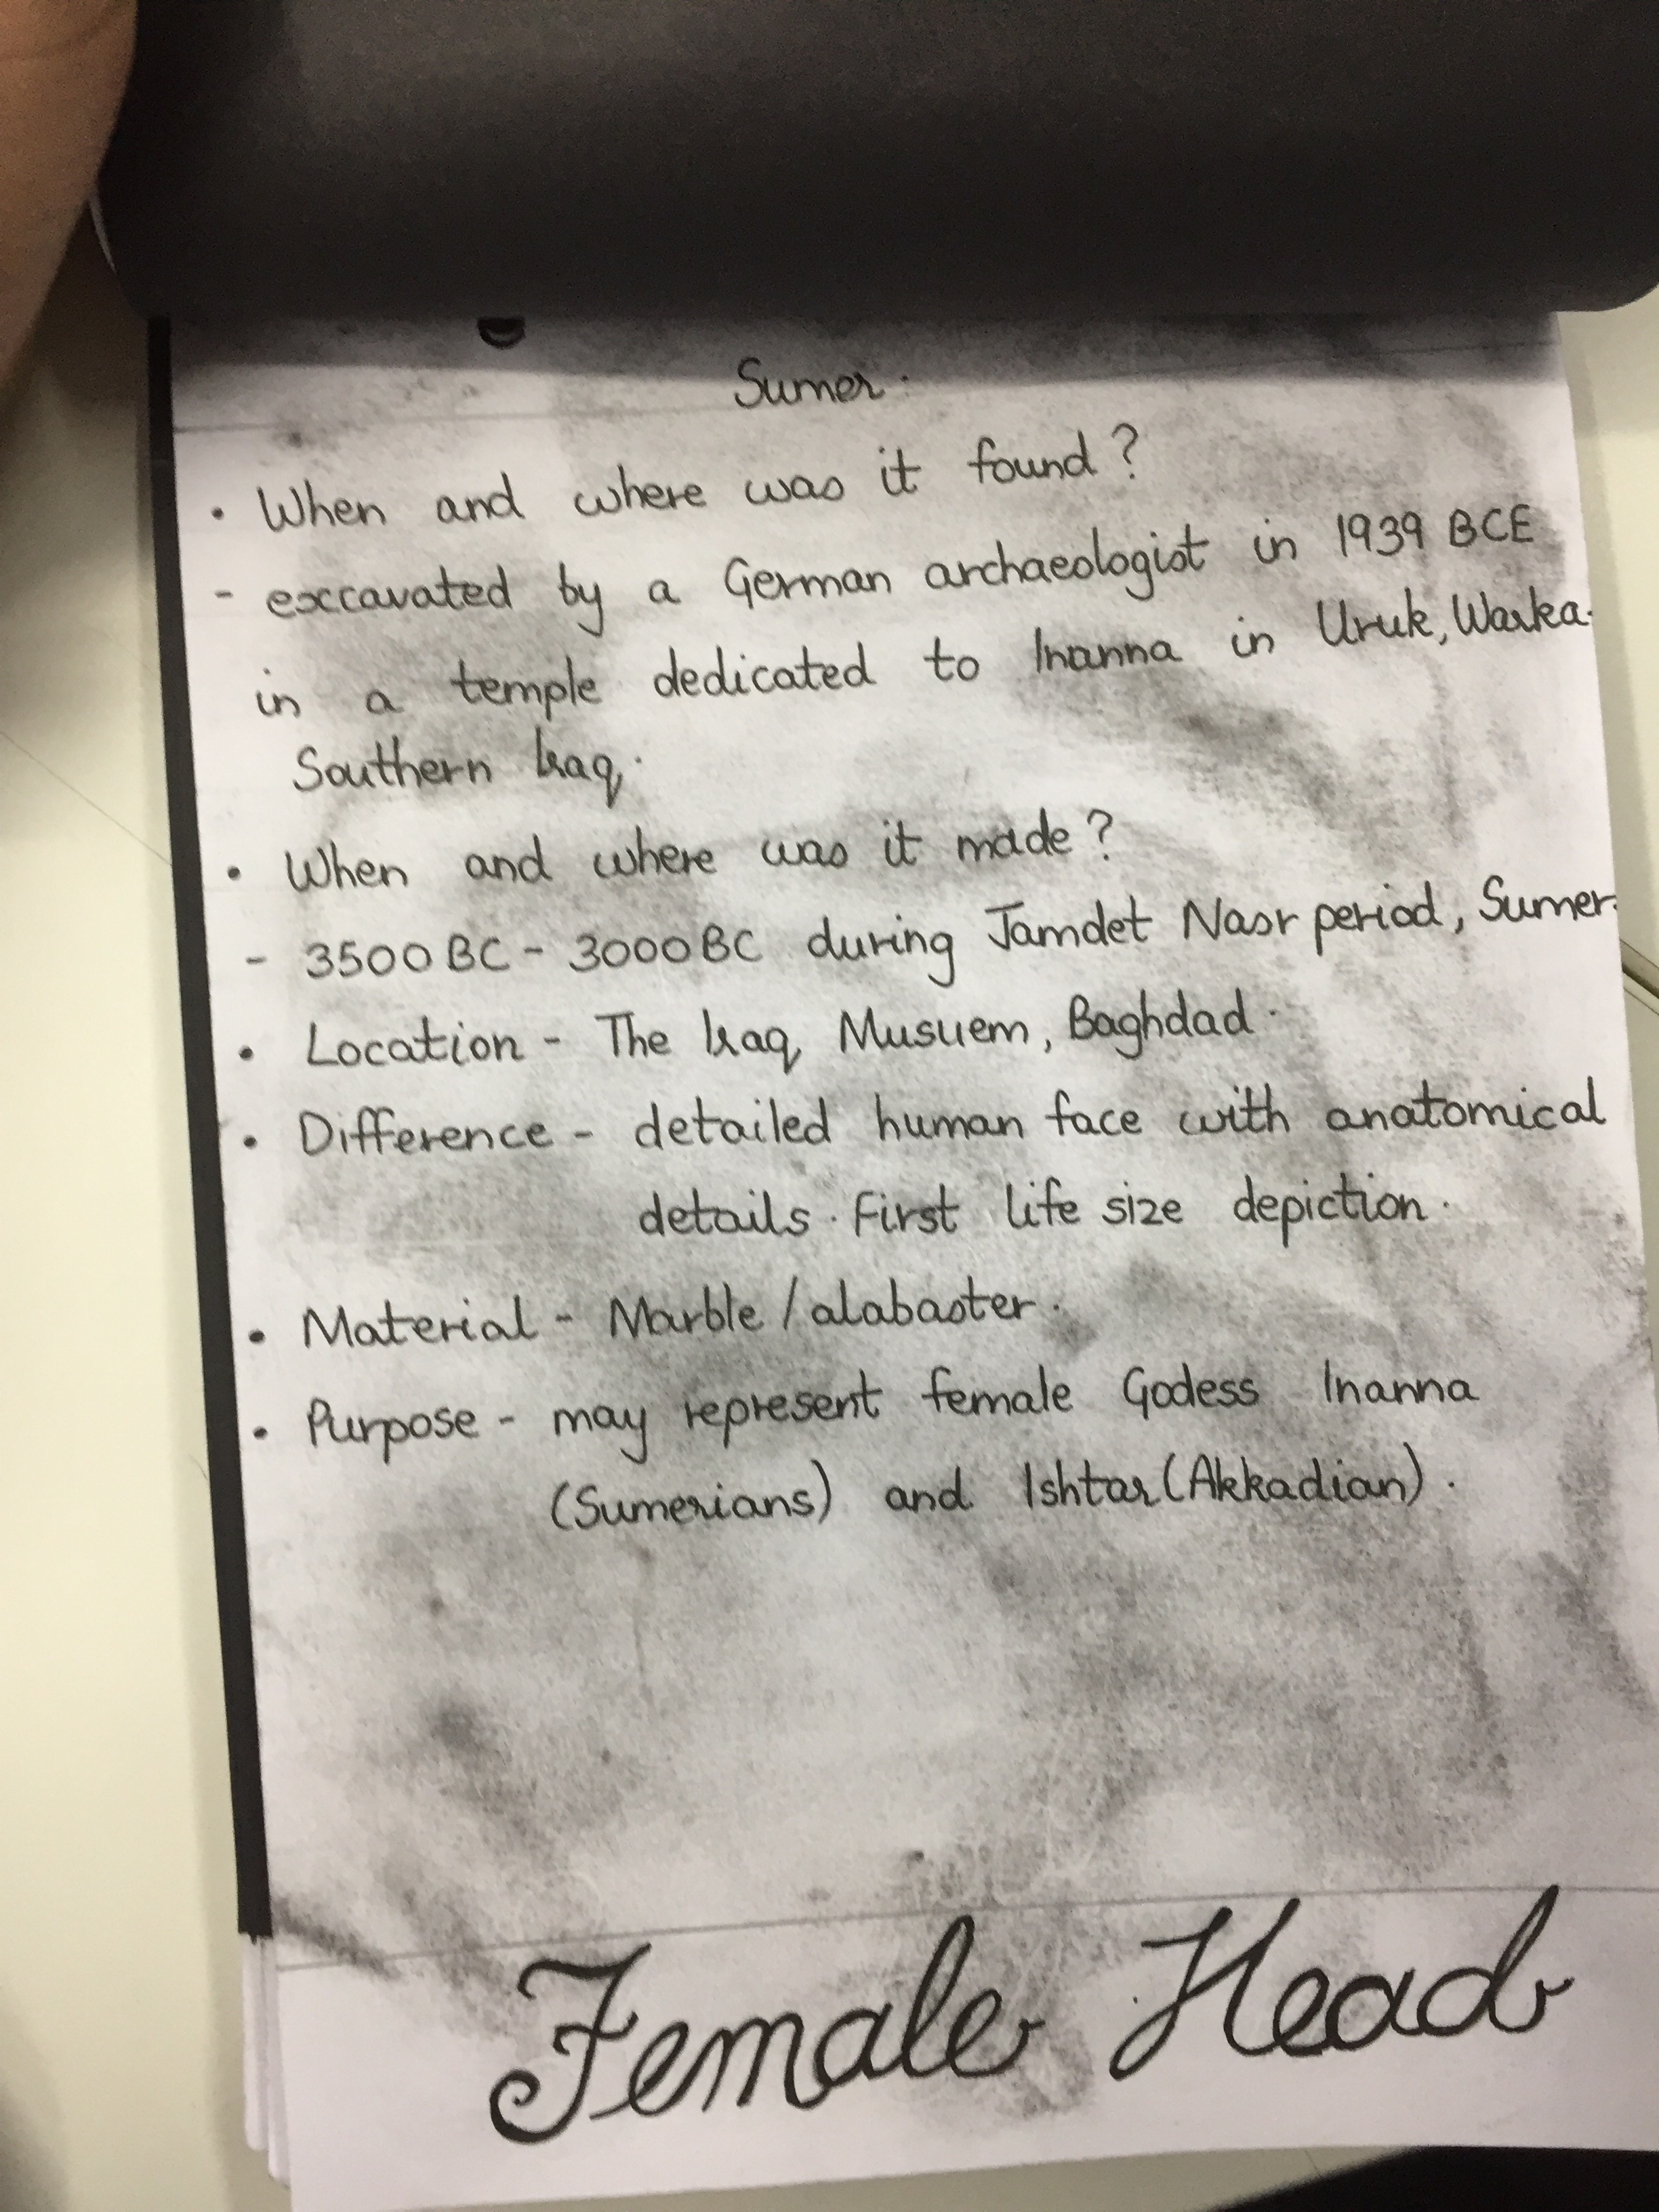 Sumer.
• When and where was it found?
- exccavated by a German archaeologist in 1939 BCE
in a temple dedicated to Inanna in Uruk, Warka.
Southern Iraq.
• When and where was it made?
- 3500 BC - 3000 BC during Jamdet Nasr period, Sumer.
• Location - The Iraq Musuem, Baghdad.
• Difference - detailed human face with anatomical
details. First life size depiction.
• Material - Marble / alabaster.
• Purpose - may represent female Godess Inanna
(Sumerians) and Ishtar (Akkadian).
Female Head